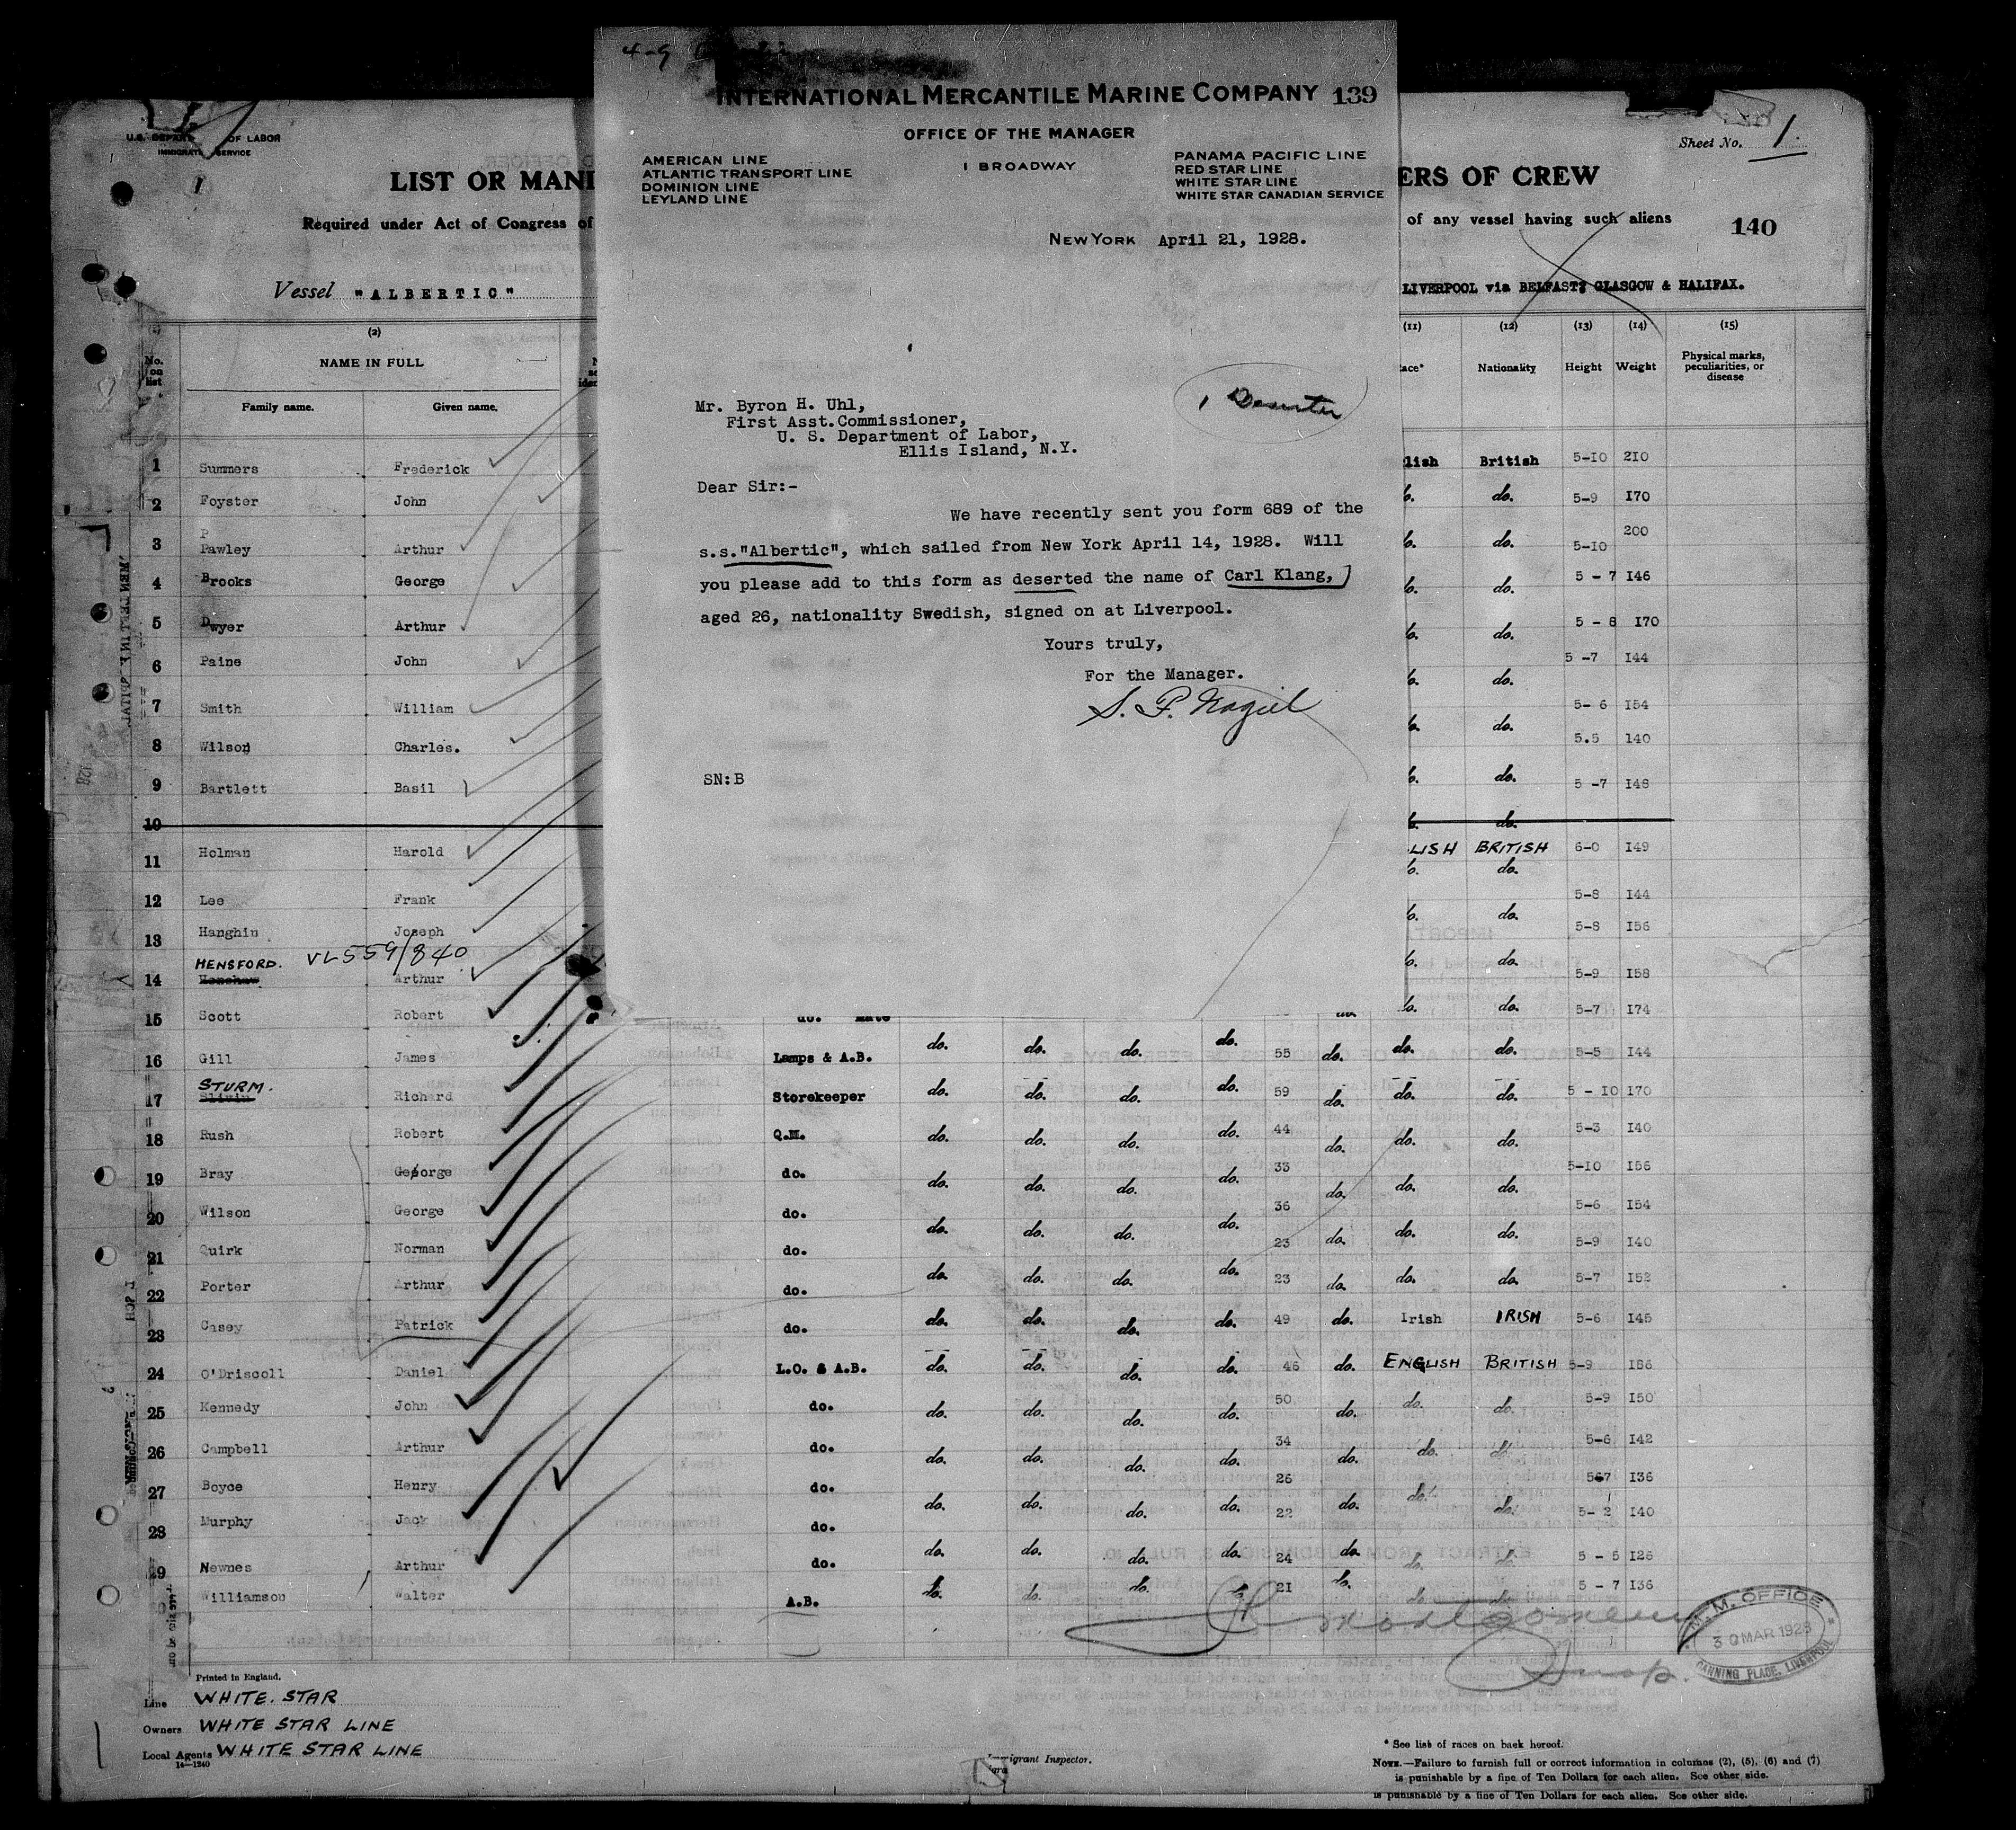 4-9
INTERNATIONAL MERCANTILE MARINE COMPANY 139
OFFICE OF THE MANAGER
1 BROADWAY
AMERICAN LINE
ATLANTIC TRANSPORT LINE
DOMINION LINE
LEYLAND LINE
PANAMA PACIFIC LINE
RED STAR LINE
WHITE STAR LINE
WHITE STAR CANADIAN SERVICE
NEW YORK April 21, 1928.
1 Deserter
Mr. Byron H. Uhl,
First Asst.Commissioner,
U. S. Department of Labor,
Ellis Island, N.Y.
Dear Sir:-
We have recently sent you form 689 of the
s.s."Albertic", which sailed from New York April 14, 1928. Will
you please add to this form as deserted the name of Carl Klang,
aged 26, nationality Swedish, signed on at Liverpool.
Yours truly,
For the Manager.
SN:B
OF LABOR
SERVICE
Sheet No. 1.
LIST OR MANI
ERS OF CREW
Required under Act of Congress of
of any vessel having such aliens
140
Vessel "ALBERTIC"
LIVERPOOL via BELFAST, GLASGOW & HALIFAX.
(2) (11) (12) (13) (14) (15)
No. on list
NAME IN FULL
Family name. Given name.
Nationality Height Weight
Physical marks, peculiarities, or disease
1 Summers Frederick lish British 5-10 210
2 Foyster John do. 5-9 170
3 Pawley Arthur do. 5-10 200
4 Brooks George do. 5 - 7 146
5 Dwyer Arthur do. 5 - 8 170
6 Paine John do. 5 -7 144
7 Smith William do. 5- 6 154
8 Wilson Charles. do. 5.5 140
9 Bartlett Basil do. 5 -7 148
10 do.
11 Holman Harold LISH BRITISH 6-0 149
do.
12 Lee Frank do. 5-8 144
13 Hanghin Joseph do. 5-8 156
HENSFORD. VL559/840
14 Henshaw Arthur 5-9 158
15 Scott Robert do. 5-7 174
16 Gill James Lamps & A.B. do. do. do. do. 55 do. do. do. 5-5 144
STURM.
17 Richard Storekeeper do. do. do. do. 59 do. do. do. 5 - 10 170
18 Rush Robert Q.M. do. do. do. do. 44 do. do. do. 5-3 140
19 Bray George do. do. do. do. do. 33 do. do. do. 5-10 156
20 Wilson George do. do. do. do. do. 36 do. do. do. 5-6 154
21 Quirk Norman do. do. do. do. do. 23 do. do. do. 5-9 140
22 Porter Arthur do. do. do. do. do. 23 do. do. do. 5-7 152
23 Casey Patrick do. do. do. do. do. 49 do. Irish IRISH 5-6 145
24 O'Driscoll Daniel L.O. & A.B. do. do. do. do. 46 do. ENGLISH BRITISH 5-9 186
25 Kennedy John do. do. do. do. do. 50 do. do. do. 5-9 150
26 Campbell Arthur do. do. do. do. do. 34 do. do. do. 5-6 142
27 Boyce Henry do. do. do. do. do. 26 do. do. do. 5-7 136
28 Murphy Jack do. do. do. do. do. 22 do. do. do. 5- 2 140
29 Newnes Arthur do. do. do. do. do. 24 do. do. do. 5 - 5 126
Williamson Walter A.B. do. do. do. do. 21 do. do. do. 5 - 7 136
M. M. OFFICE
30 MAR 1928
CANNING PLACE, LIVERPOOL
Printed in England.
Line WHITE. STAR
Owners WHITE STAR LINE
Local Agents WHITE STAR LINE
14—1240
Immigrant Inspector.
* See list of races on back hereof.
NOTE.—Failure to furnish full or correct information in columns (2), (5), (6) and (7)
is punishable by a fine of Ten Dollars for each alien. See other side.
is punishable by a fine of Ten Dollars for each alien. See other side.